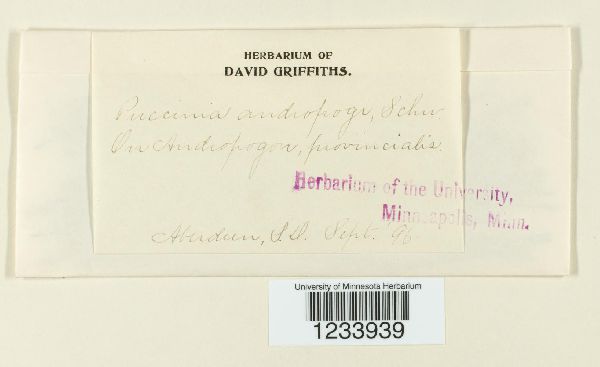 HERBARIUM OF
DAVID GRIFFITHS.
Puccinia andropogi, Schw.
On Andropogon, provincialis.
Herbarium of the University,
Minneapolis, Minn.
Aberdeen, S.D. Sept. '96.
University of Minnesota Herbarium
1233939